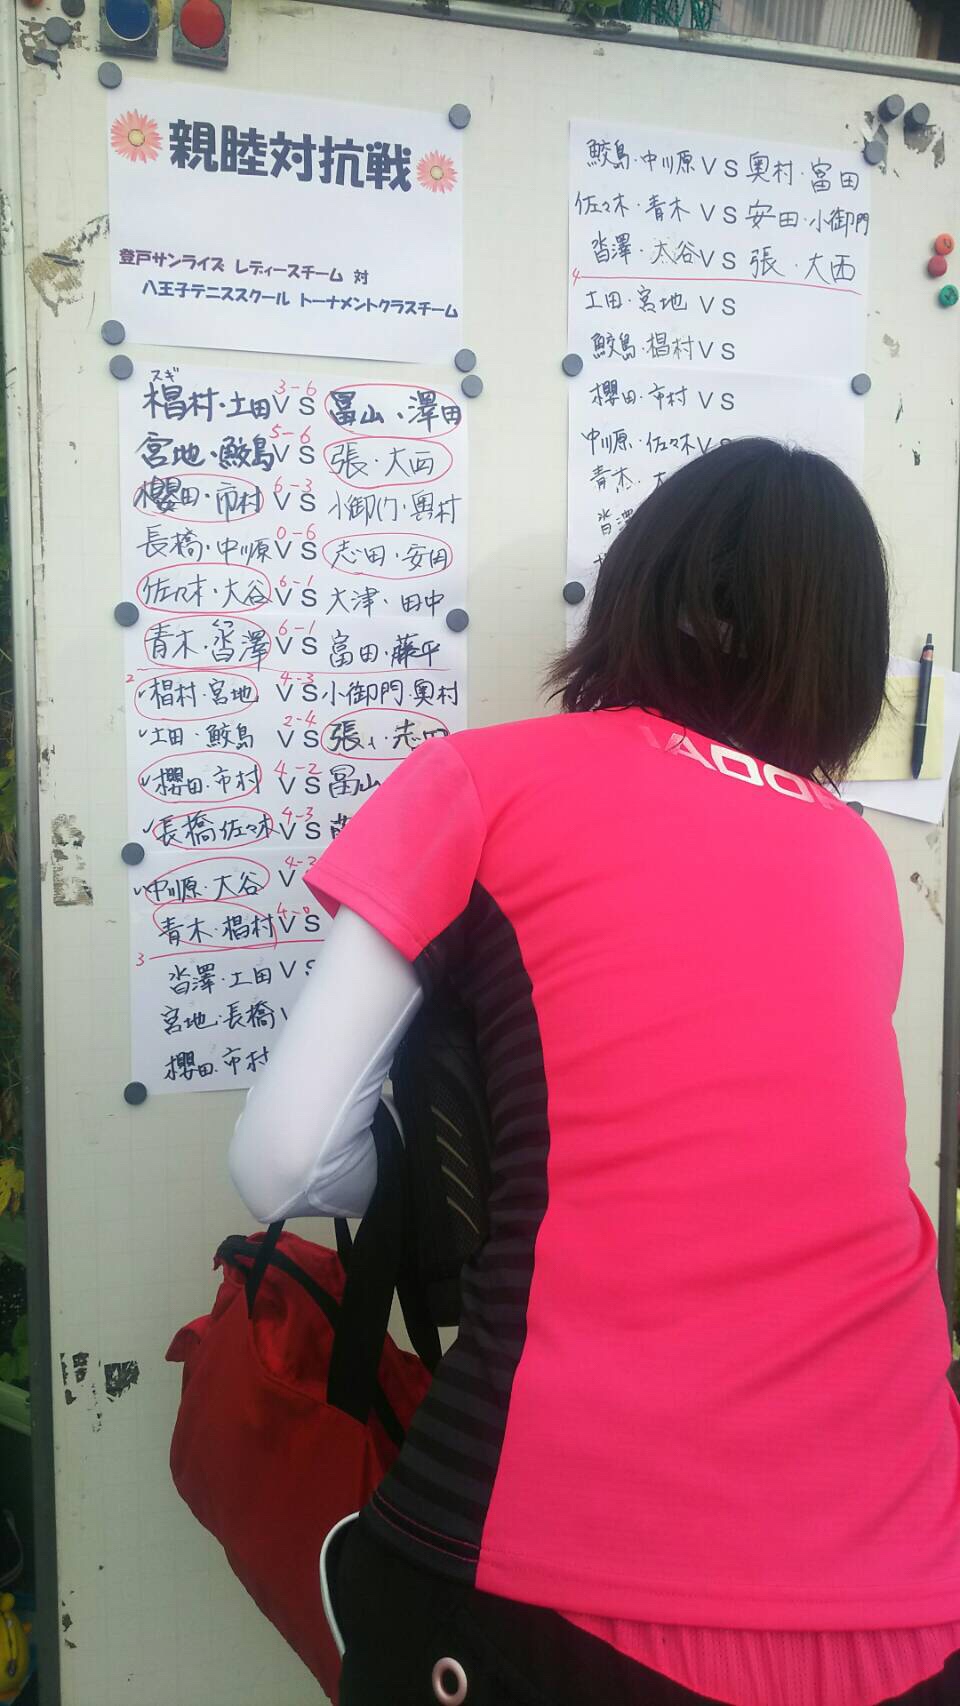 親睦対抗戦
登戸サンライズ レディースチーム 対
八王子テニススクール トーナメントクラスチーム
スギ
椙村・土田 3-6 VS 冨山・澤田
宮地・鮫島 5-6 VS 張・大西
櫻田・市村 6-3 VS 小御門・奥村
長橋・中川原 0-6 VS 志田・安田
佐々木・大谷 6-1 VS 大津・田中
クツ
青木・沓澤 6-1 VS 富田・藤平
2
椙村・宮地 4-3 VS 小御門・奥村
土田・鮫島 2-4 VS 張・志田
櫻田・市村 4-2 VS 冨山
長橋 佐々木 4-3 VS
中川原・大谷 V
青木・椙村 4-0 VS
3
沓澤・土田 VS
宮地・長橋
櫻田・市村
鮫島・中川原 VS 奥村・富田
佐々木・青木 VS 安田・小御門
沓澤・大谷 VS 張・大西
4
土田・宮地 VS
鮫島・椙村 VS
櫻田・市村 VS
中川原・佐々木 VS
青木
沓澤